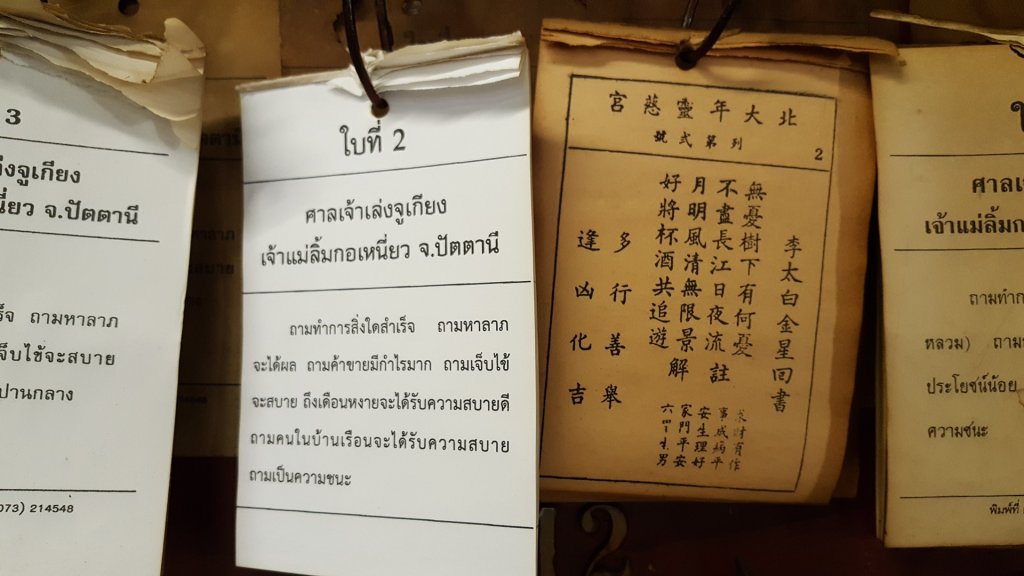 3
เล่งจูเกียง
นี่ยว จ.ปัตตานี
ถามหาลาภ
เจ็บไข้จะสบาย
ปานกลาง
073) 214548
ใบที่ 2
ศาลเจ้าเล่งจูเกียง
เจ้าแม่ลิ้มกอเหนี่ยว จ.ปัตตานี
ถามทำการสิ่งใดสำเร็จ ถามหาลาภ
จะได้ผล ถามค้าขายมีกำไรมาก ถามเจ็บไข้
จะสบาย ถึงเดือนหงายจะได้รับความสบายดี
ถามคนในบ้านเรือนจะได้รับความสบาย
ถามเป็นความชนะ
北大年靈慈宮
列第式號
2
李太白金星回書
無憂樹下有何憂
不盡長江日夜流註
月明風清無限景解
好將杯酒共追遊
求財有作
事成病平
安生理好
家門平安
六甲生男
多行善舉
逢凶化吉
2
ศาลเ
เจ้าแม่ลิ้มก
ถามทำก
หลวม) ถาม
ประโยชน์น้อย
ความชนะ
พิมพ์ที่